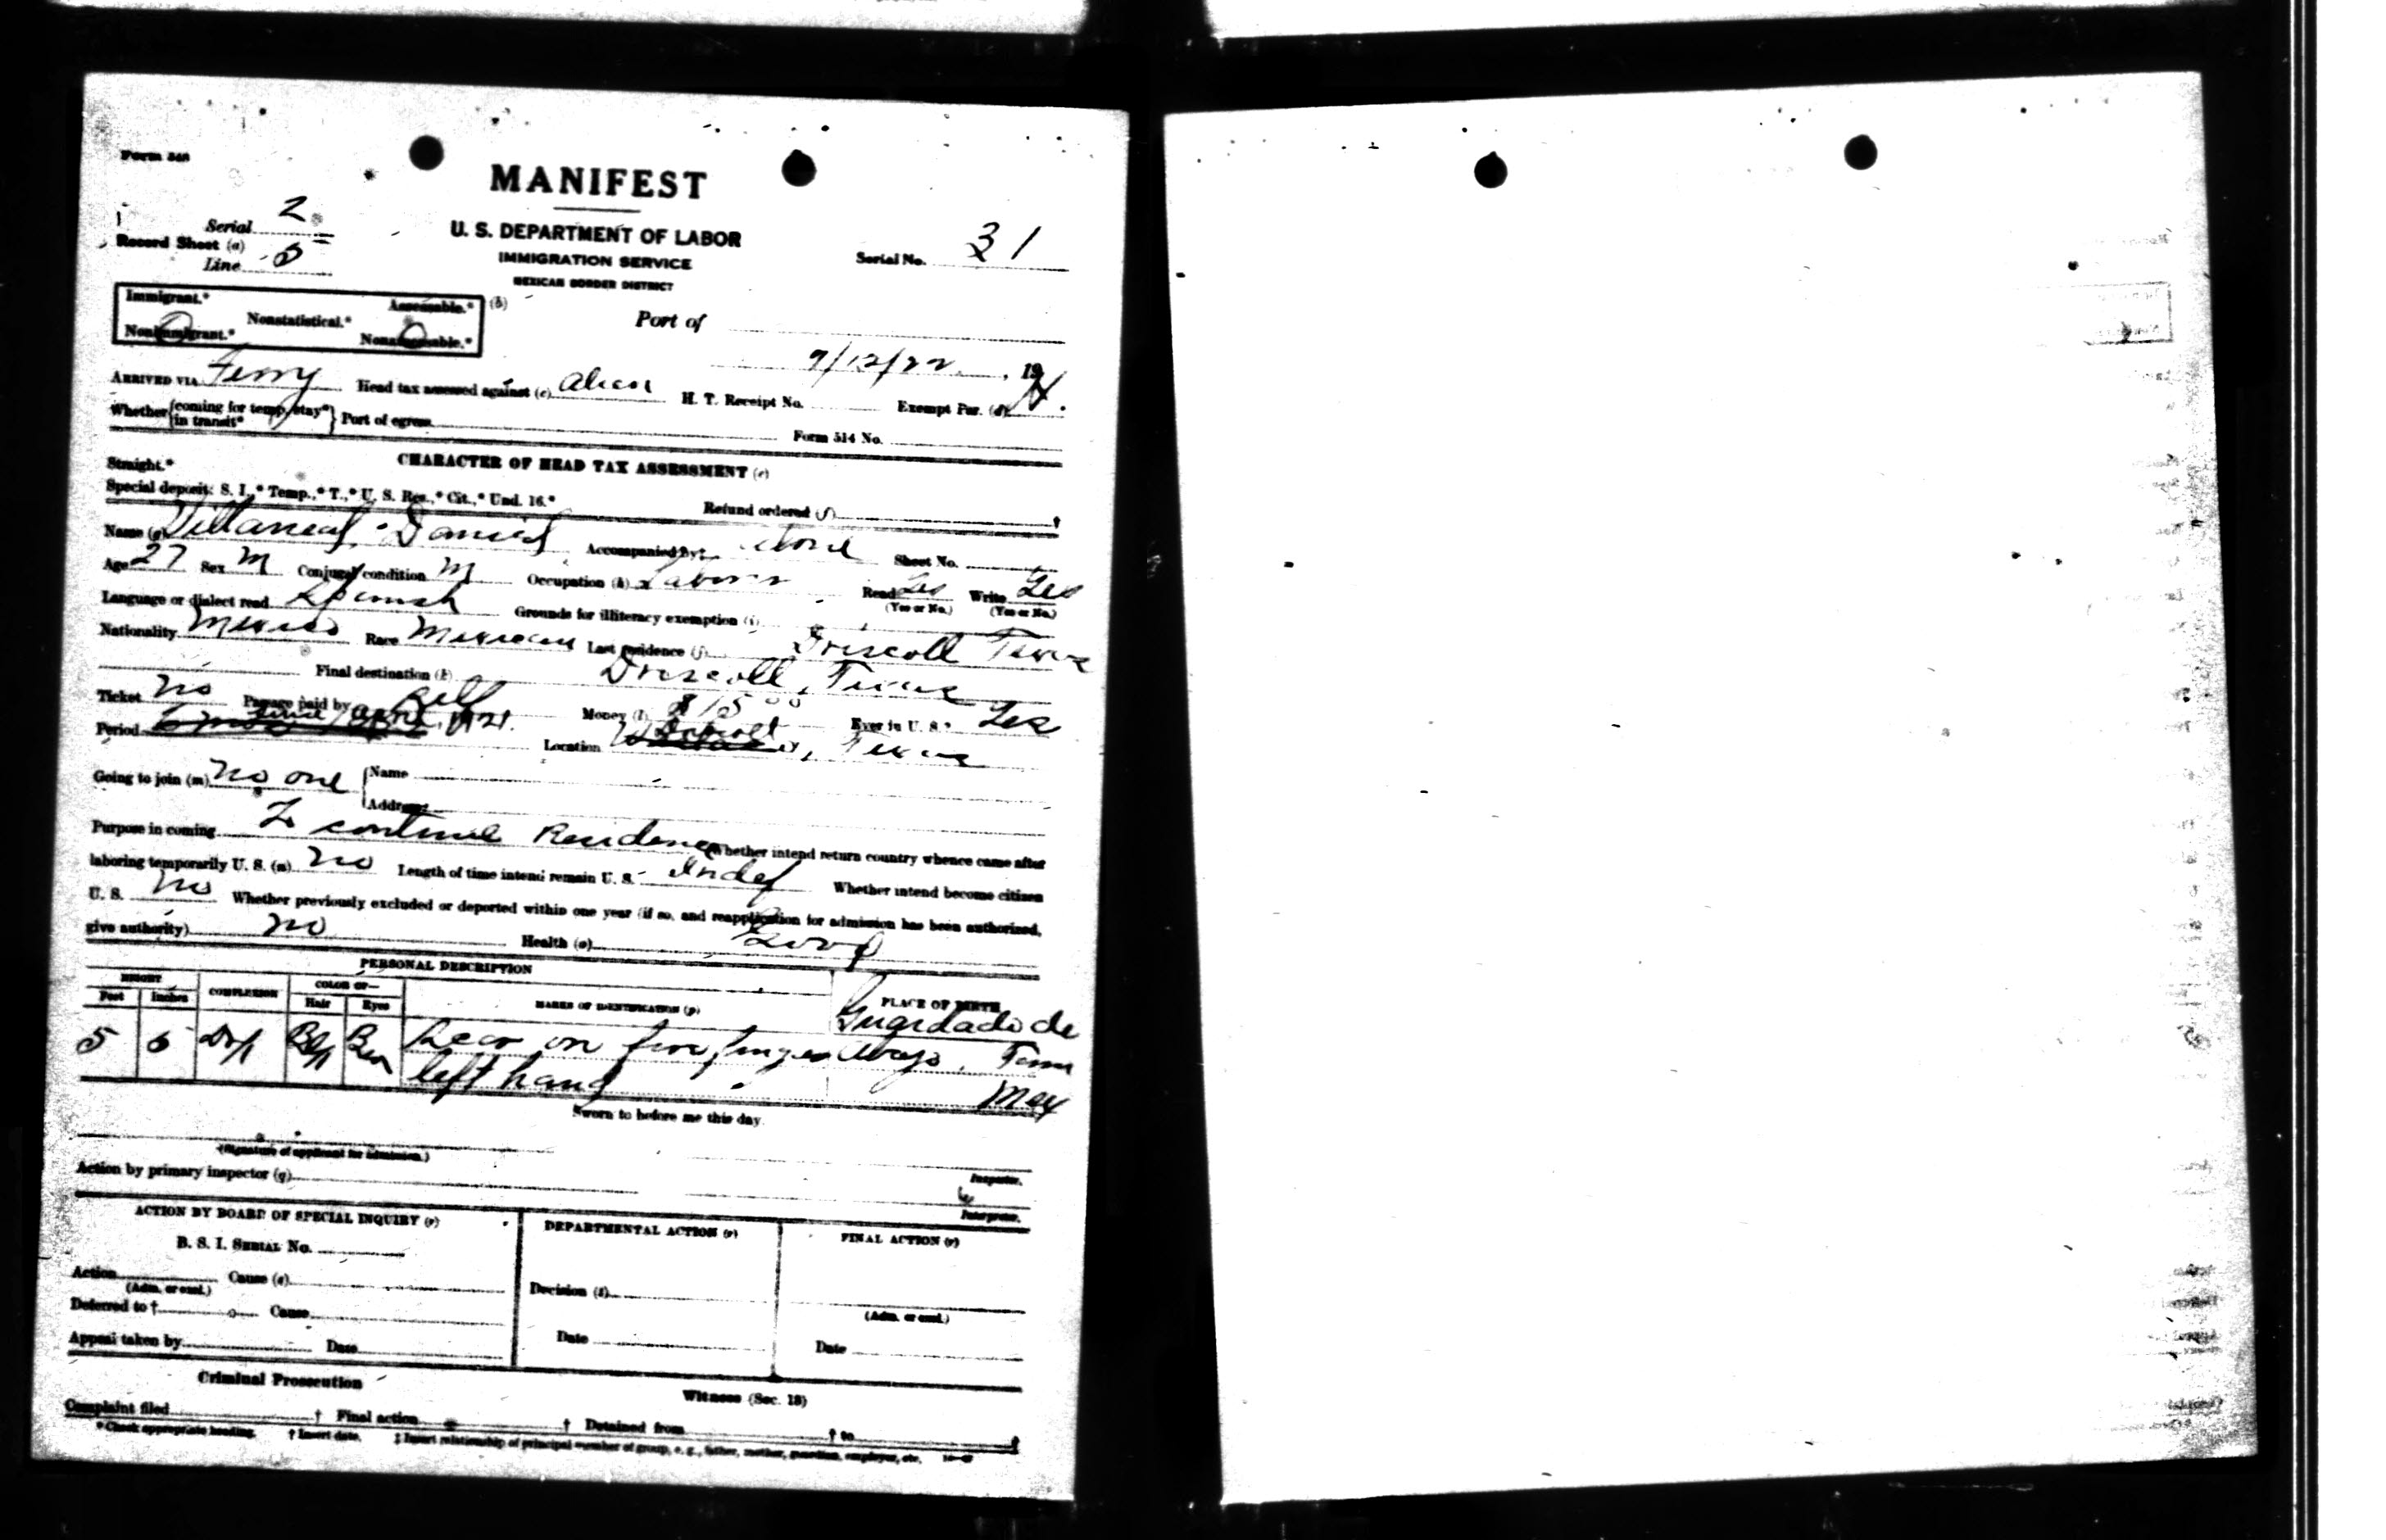 Form 548
MANIFEST
Serial 2
U. S. DEPARTMENT OF LABOR
Record Sheet (a)
Serial No. 31
Line
IMMIGRATION SERVICE
MEXICAN BORDER DISTRICT
Immigrant.* Assessable.* (b)
Nonstatistical.*
Nonimmigrant.* Nonassessable.*
Port of
9/12/22, 19
ARRIVED VIA Ferry Head tax assessed against (c) alien H. T. Receipt No. Exempt Par. (d)
Whether {coming for temp. stay* in transit*} Port of egress Form 514 No.
CHARACTER OF HEAD TAX ASSESSMENT (e)
Straight.*
Special deposit: S. I.,* Temp.,* T.,* U. S. Res.,* Cit.,* Und. 16.* Refund ordered (f) †
Name (g) Villareal Daniel Accompanied by‡ Alone Sheet No.
Age 27 Sex M Conjugal condition M Occupation (h) Laborer Read Yes Write Yes
(Yes or No.) (Yes or No.)
Language or dialect read Spanish Grounds for illiteracy exemption (i)
Nationality Mexico Race Mexican Last residence (j) Driscoll Texas
Final destination (k) Driscoll, Texas
Ticket no Passage paid by Self Money (l) $15 00 Ever in U. S.* Yes
Period since April 1921. Location Driscoll, Texas
Going to join (m) no one {Name
Address
Purpose in coming To continue Residence Whether intend return country whence came after
laboring temporarily U. S. (n) no Length of time intend remain U. S. Indef Whether intend become citizen
U. S. no Whether previously excluded or deported within one year (if so, and reapplication for admission has been authorized,
give authority) no Health (o) Good
PERSONAL DESCRIPTION
HEIGHT COMPLEXION COLOR OF— MARKS OF IDENTIFICATION (p) PLACE OF BIRTH
Feet Inches Hair Eyes
Guardado de
5 6 Drk Blk Brn Scar on fore finger Abajo, Tam
left hand Mex
Sworn to before me this day
(Signature of applicant for admission.)
Inspector.
Action by primary inspector (q)
Interpreter.
ACTION BY BOARD OF SPECIAL INQUIRY (r) DEPARTMENTAL ACTION (r) FINAL ACTION (r)
B. S. I. SERIAL No.
Action Cause (s) Decision (t)
(Adm. or excl.) (Adm. or excl.)
Deferred to † Cause
Appeal taken by Date Date Date
Criminal Prosecution Witness (Sec. 18)
Complaint filed † Final action † Detained from † to †
* Check appropriate heading. † Insert date. ‡ Insert relationship of principal member of group, e. g., father, mother, guardian, employer, etc.